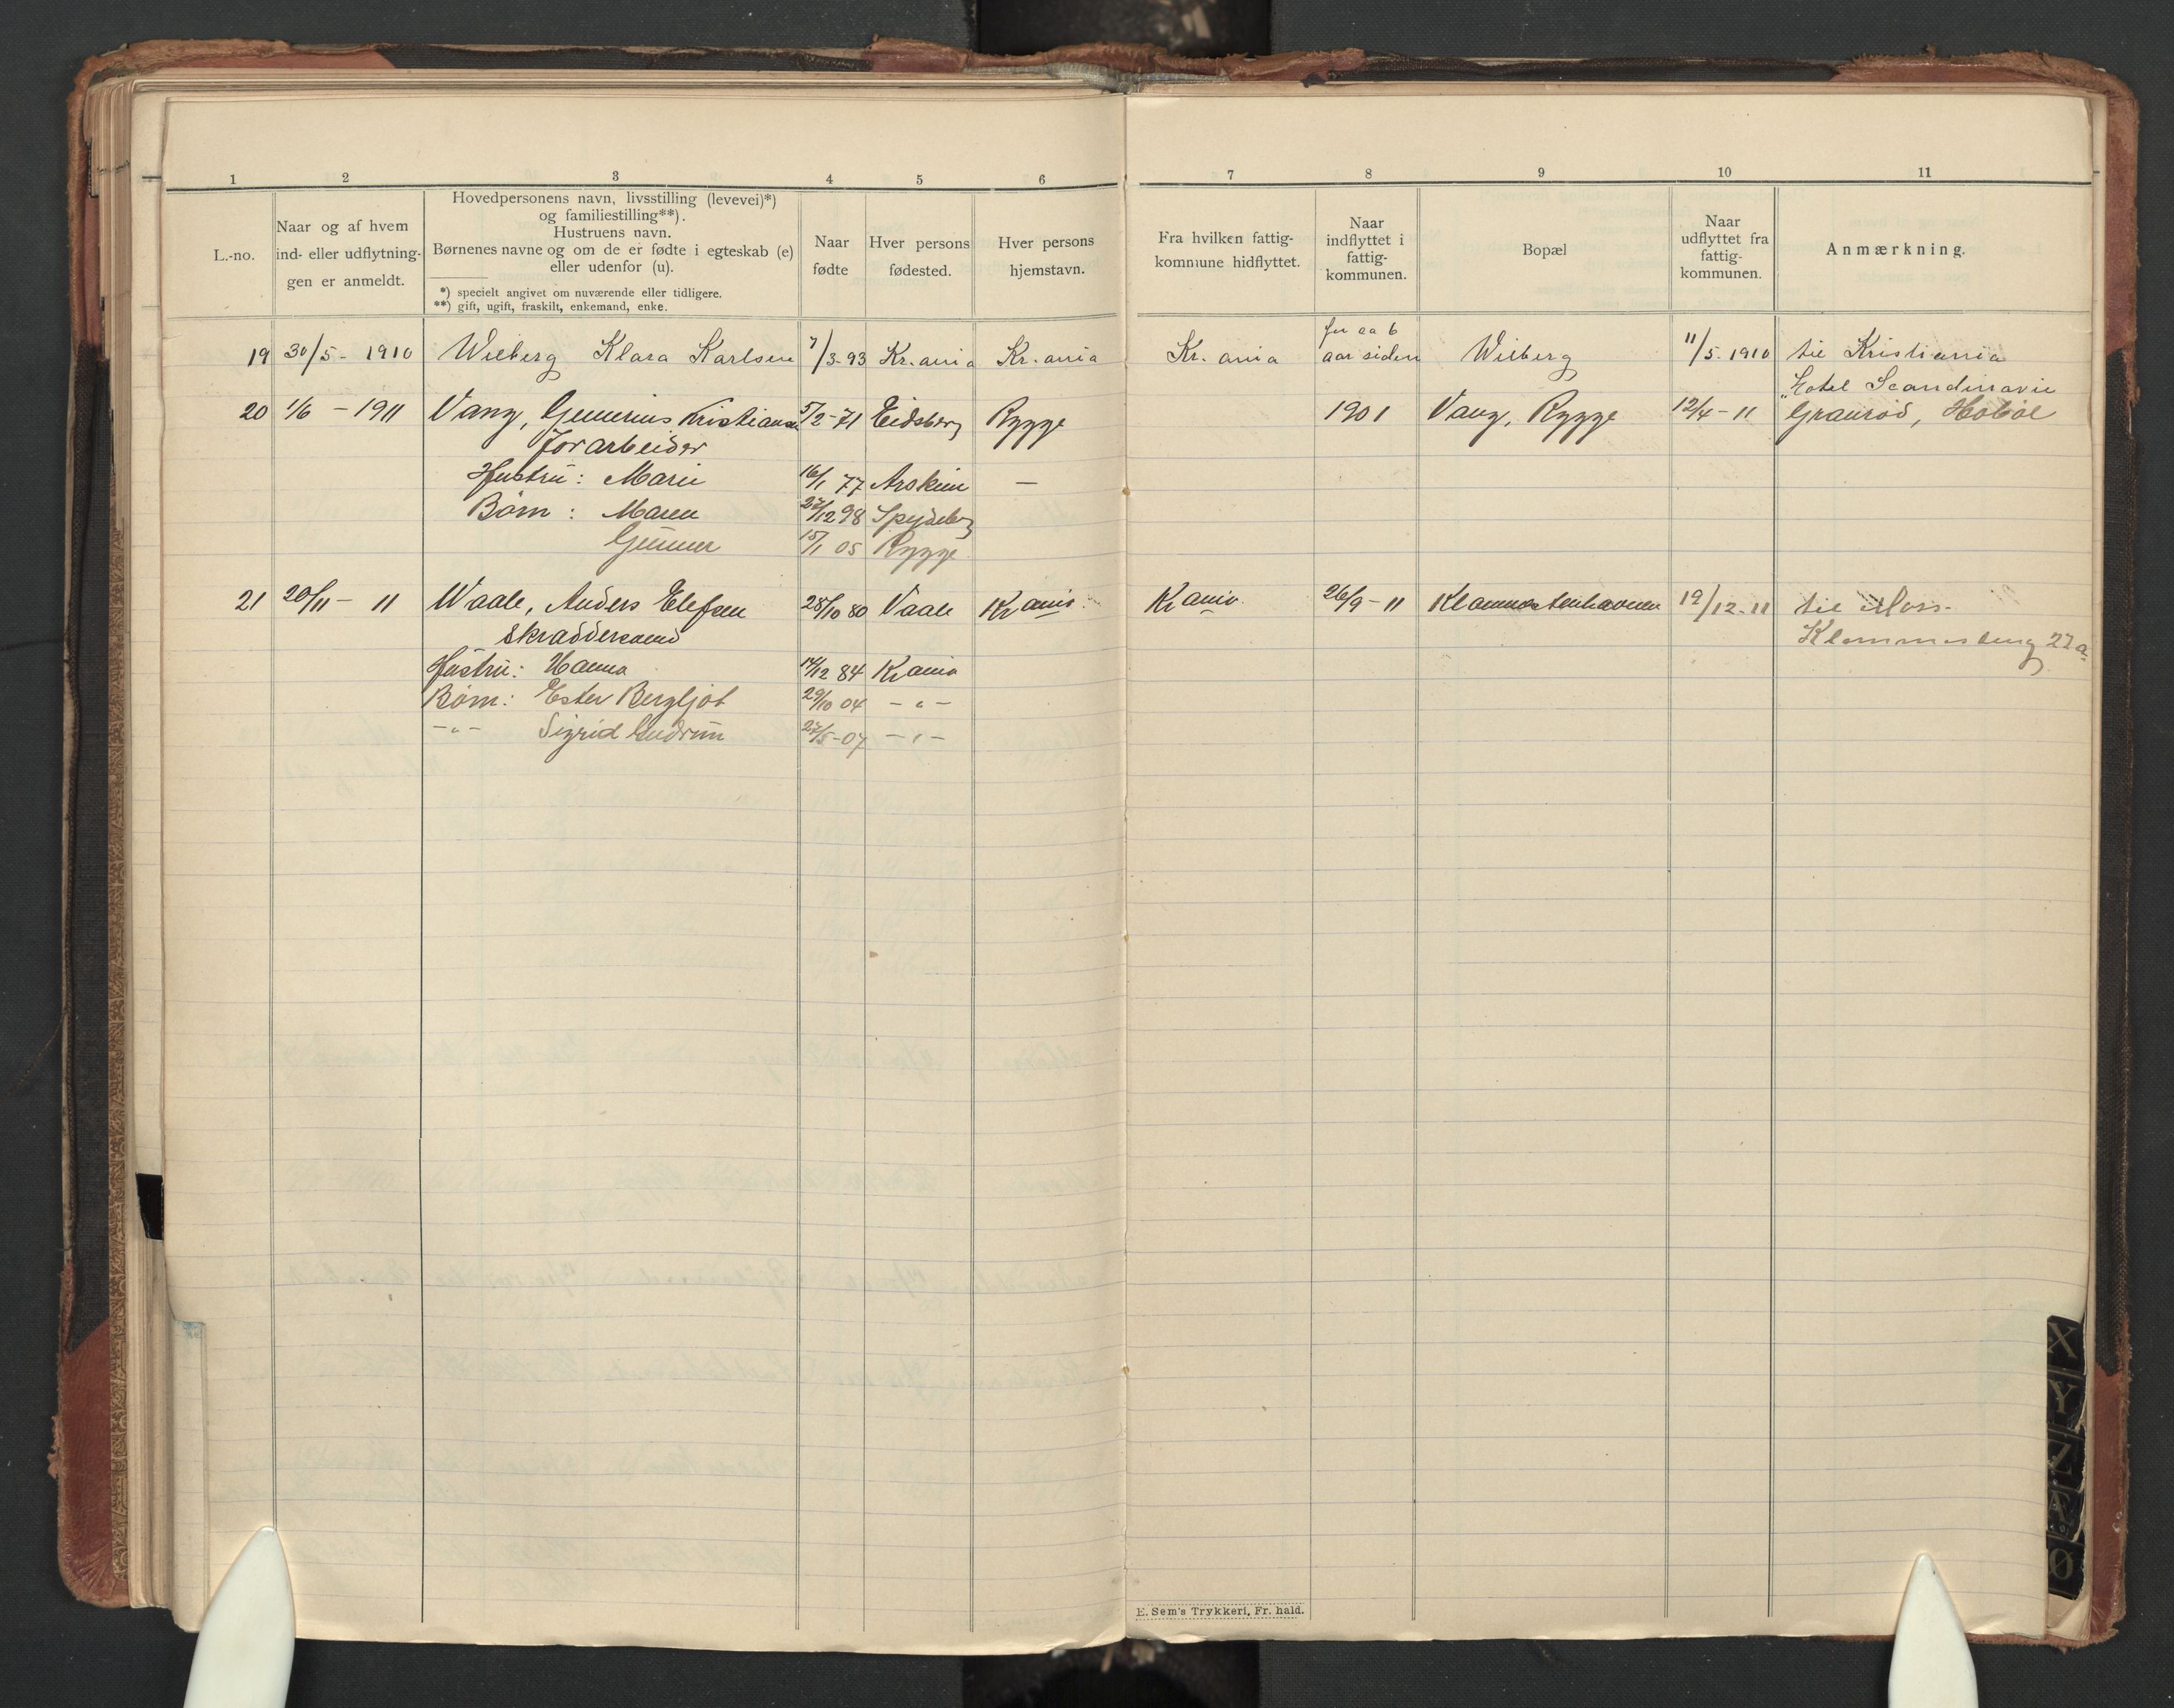 1 2 3 4 5 6 7 8 9 10 11
L.-no.
Naar og af hvem
ind- eller udflytnin-
gen er anmeldt.
Hovedpersonens navn, livsstilling (levevei)*)
og familiestilling**).
Hustruens navn.
Børnenes navne og om de er fødte i egteskab (e)
eller udenfor (u).
*) specielt angivet om nuværende eller tidligere.
**) gift, ugift, fraskilt, enkemand, enke.
Naar
fødte
Hver persons
fødested.
Hver persons
hjemstavn.
Fra hvilken fattig-
kommune hidflyttet.
Naar
indflyttet i
fattig-
kommunen.
Bopæl
Naar
udflyttet fra
fattig-
kommunen.
Anmærkning.
19 30/5 - 1910 Wilberg Klara Karlsen 7/3-93 Kr.ania Kr.ania Kr.ania for ca 6 aar siden Wilberg 11/5-1910 til Kristiania
"Hotel Scandinavie
20 1/6 - 1911 Vang, Kristiansen 5/2-71 Eidsberg Rygge 1901 Vang, Rygge 12/4-11 Graurød, Hobøl
Jorarbeider
Hustru: Marie 16/1 77 Askim —
Børn: Maren 27/12 98 Spydeberg
Gunner 15/1 05 Rygge
21 20/11 - 11 Waale, Anders Elefsen 28/10 80 Vaale Krania Krania 26/9-11 19/12-11 til Moss-
Skræddersvend Klommesberg 27a
Hustru: Hanna 14/12 84 Krania
Børn: Ester Bergljot 29/10 04 -"-
-"- Sigrid Gudrun 27/5-07 -"-
E. Sem's Trykkeri, Fr. hald.
X
Y
Z
Æ
Ø